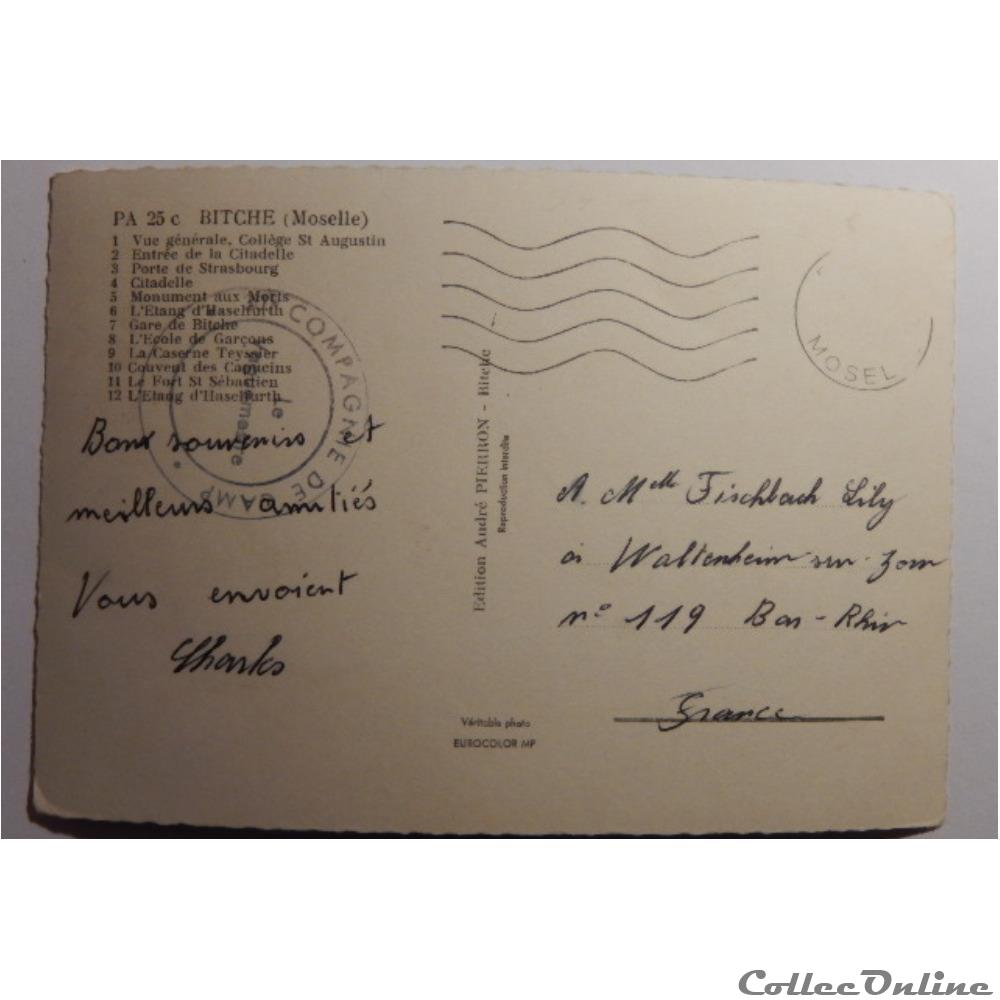 PA 25 c BITCHE (Moselle)
1 Vue générale, Collège St Augustin
2 Entrée de la Citadelle
3 Porte de Strasbourg
4 Citadelle
5 Monument aux Morts
6 L'Etang d'Haselfurth
7 Gare de Bitche
8 L'Ecole de Garçons
9 La Caserne Teyssier
10 Couvent des Capucins
11 Le Fort St Sébastien
12 L'Etang d'Haselfurth
COMPAGNIE DE CAMP
Le
Vaguemestre
Bons souvenirs et
meilleurs amitiés
Vous envoient
Charles
Edition André PIERRON - Bitche
Reproduction interdite
Véritable photo
EUROCOLOR MP
MOSEL
A Melle Fischbach Lily
à Waltenheim sur Zorn
n° 119 Bas-Rhin
France
CollecOnline